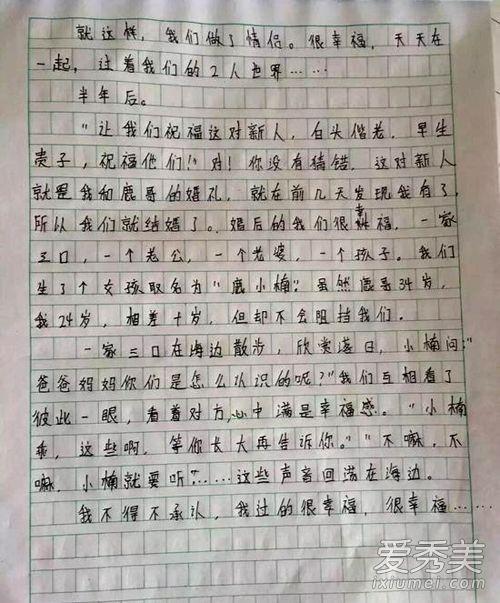 就这样，我们做了情侣。很幸福，天天在
一起，过着我们的2人世界……
半年后。
“让我们祝福这对新人，白头偕老，早生
贵子，祝福他们！”对！你没有猜错，这对新人
就是我和鹿哥的婚礼，就在前几天发现我有了，
所以我们就结婚了。婚后的我们很幸福，一家
三口，一个老公，一个老婆，一个孩子。我们
生了个女孩取名为“鹿小楠”。虽然鹿哥34岁，
我24岁，相差十岁，但却不会阻挡我们。
一家三口在海边散步，欣赏落日，小楠问：“
爸爸妈妈你们是怎么认识的呢？”我们互相看了
彼此一眼，看着对方，心中满是幸福感。“小楠
乖，这些啊，等你长大再告诉你。”“不嘛，不
嘛，小楠就要听”……这些声音回荡在海边。
我不得不承认，我过的很幸福，很幸福……
爱秀美
ixiumei.com